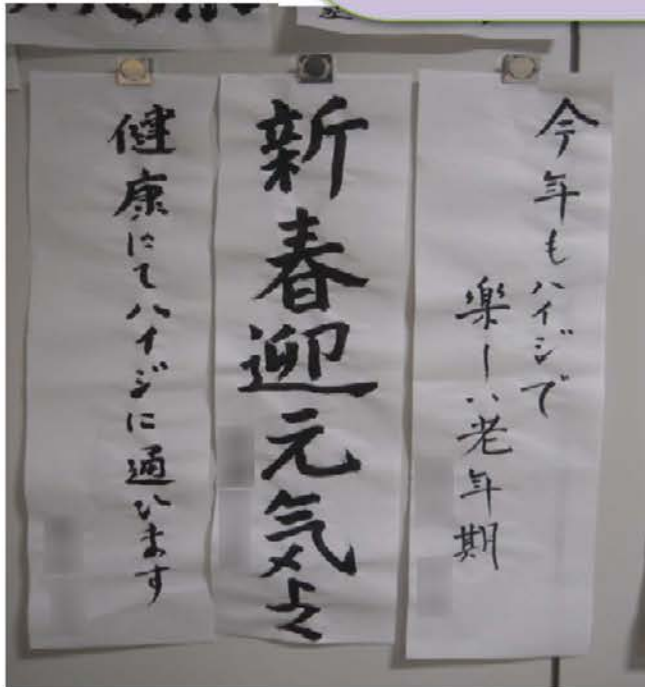 今年もハイジで
楽しい老年期
新春迎元気上々
健康にてハイジに通ひます